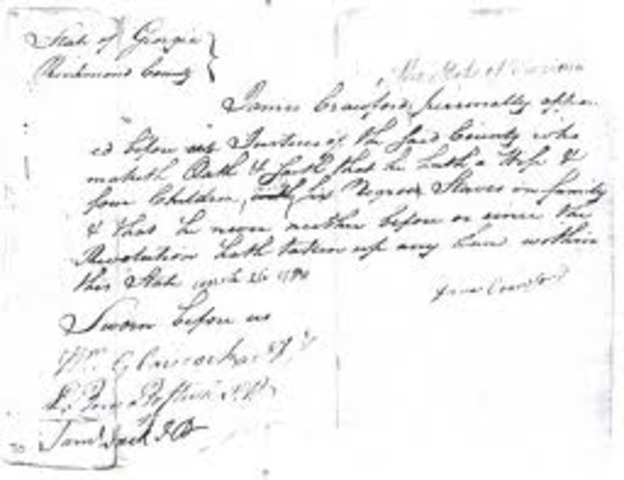 State of Georgia
Richmond County
James Crawford personally appear
ed before us Justices of the Said County who
maketh Oath & Saith that he hath a Wife &
four Children, Six Negroe Slaves in family
& that he never neither before or since the
Revolution hath taken up any Land within
this State
Sworn before us
Wm Glascock
Saml Jack J P